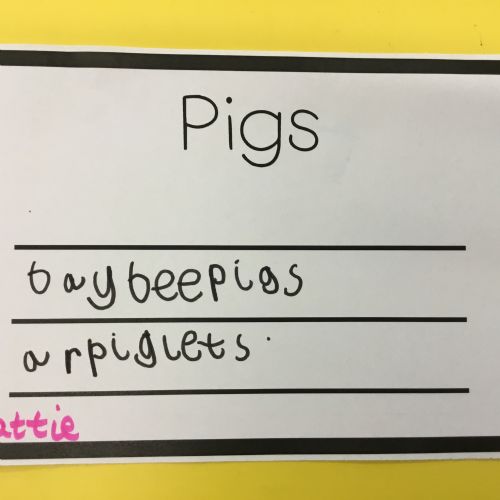 Pigs
baybeepigs
arpiglets.
attie